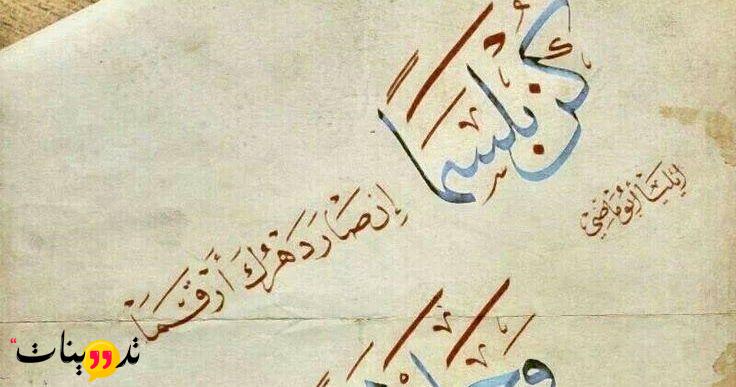 كن بلسمًا
إن صار دهرك أرقما
إيليا أبو ماضي
تدوينات